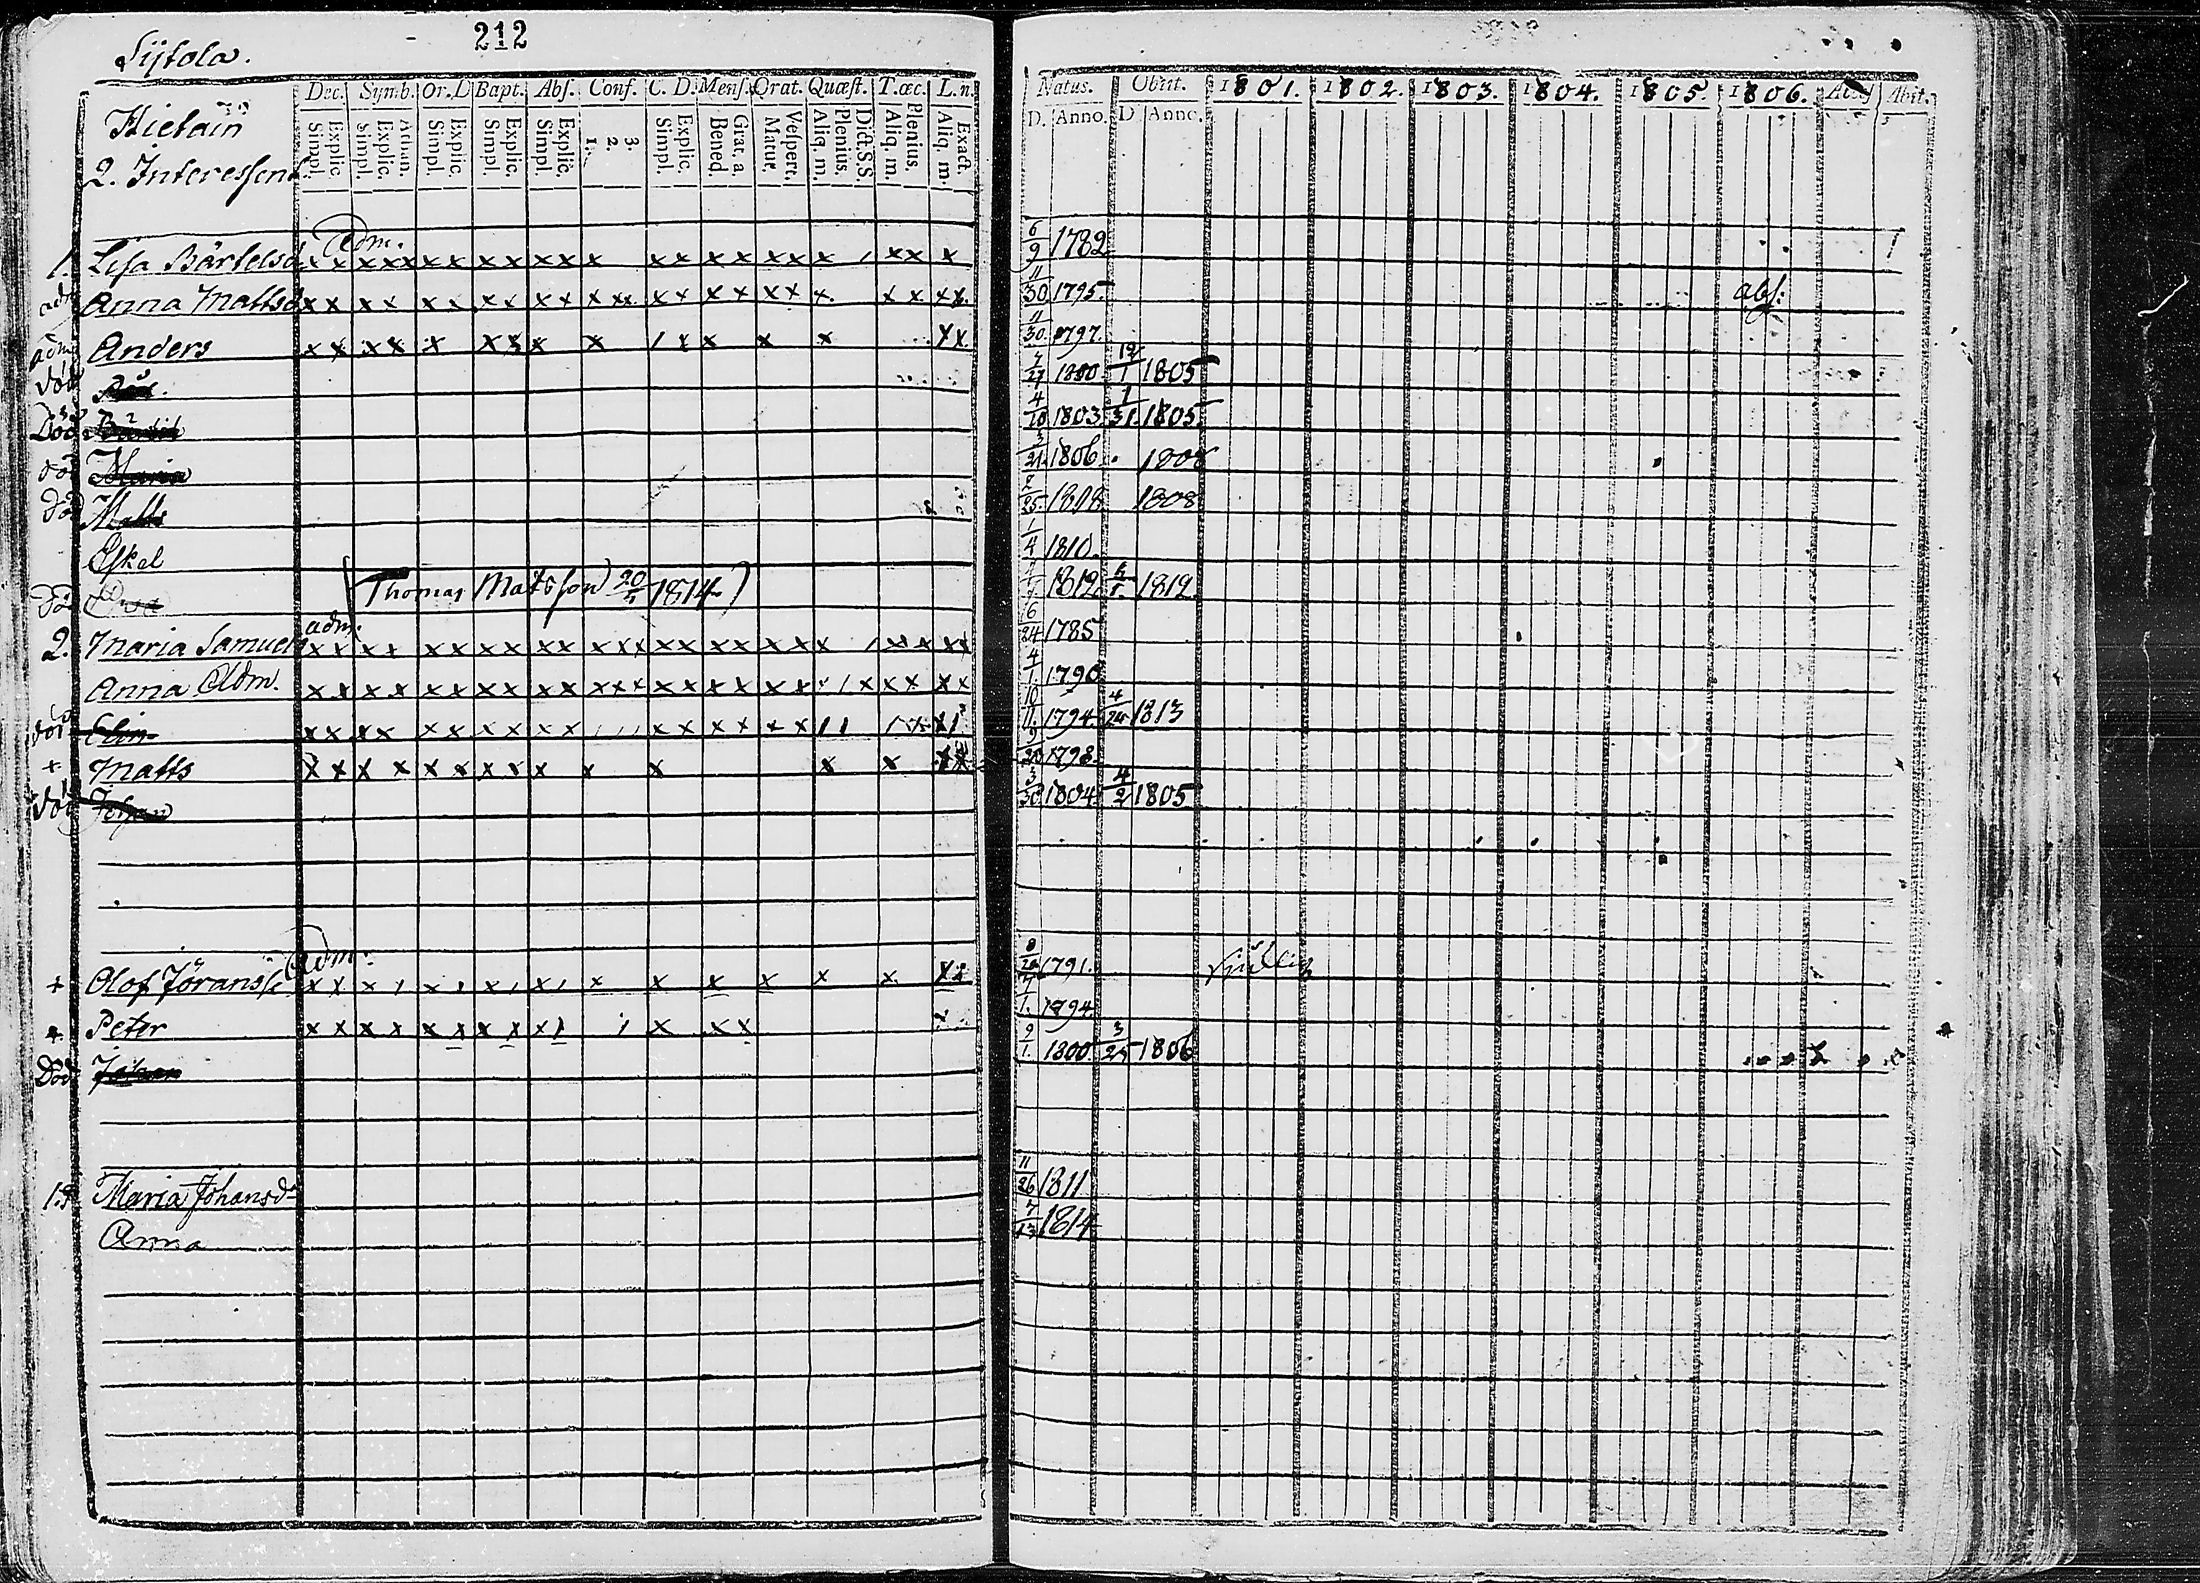 212
Sijtola.
Dec. Symb. Or. D Bapt. Abs. Conf. C. D. Mens. Orat. Quæst. T. œc. L. n.
Natus. Obiit. 1801. 1802. 1803. 1804. 1805. 1806. Abit.
D. Anno. D Anno.
Simpl. Explic. Simpl. Explic. Athan. Simpl. Explic. Simpl. Explic. Simpl. Explic. 1. 2. 3. Simpl. Explic. Bened Grat. a Matut. Vespert. Aliq. m. Plenius. Dict. S.S. Aliq. m. Plenius. Aliq. m. Exact.
Hietain
2. Interessent
Adm.
1. Lisa Bärtelsd x x x x x x x x x x x x x x x x x x x x x x x 6/9 1782
adm Anna Mattsd x x x x x x x x x x x x x x x x x x x x x x x 11/30 1795. abs:
adm Anders x x x x x x x x x x x x x 11/30. 1797.
död 1800 12/1 1805
Död Bärtil 4/10 1803 7/31. 1805.
död Maria 3/21 1806. 1808
död Matts 2/25. 1808 1808
Eskel 1/4 1810.
(Thomas Matsson 20/11 1814)
död 1812 1812
adm.
2. Maria Samuels x x x x x x x x x x x x x x x x x x x x x x x 6/24 1785
Anna Adm. x x x x x x x x x x x x x x x x x x x x x x 4/1. 1790
död Elin x x x x x x x x x x x x x x x x 10/11. 1794. 4/24 1813
+ Matts x x x x x x x x x x x x x x 9/20 1798.
död Johan 3/30 1804. 4/2 1805
Adm.
+ Olof Jörans x x x x x x x x x x x x x x 1791.
+ Peter x x x x x x x x x x x x 1/1. 1794.
Död Johan 9/1. 1800 3/25 1806
Maria Johansdr 11/26 1811
Anna 7/13 1814